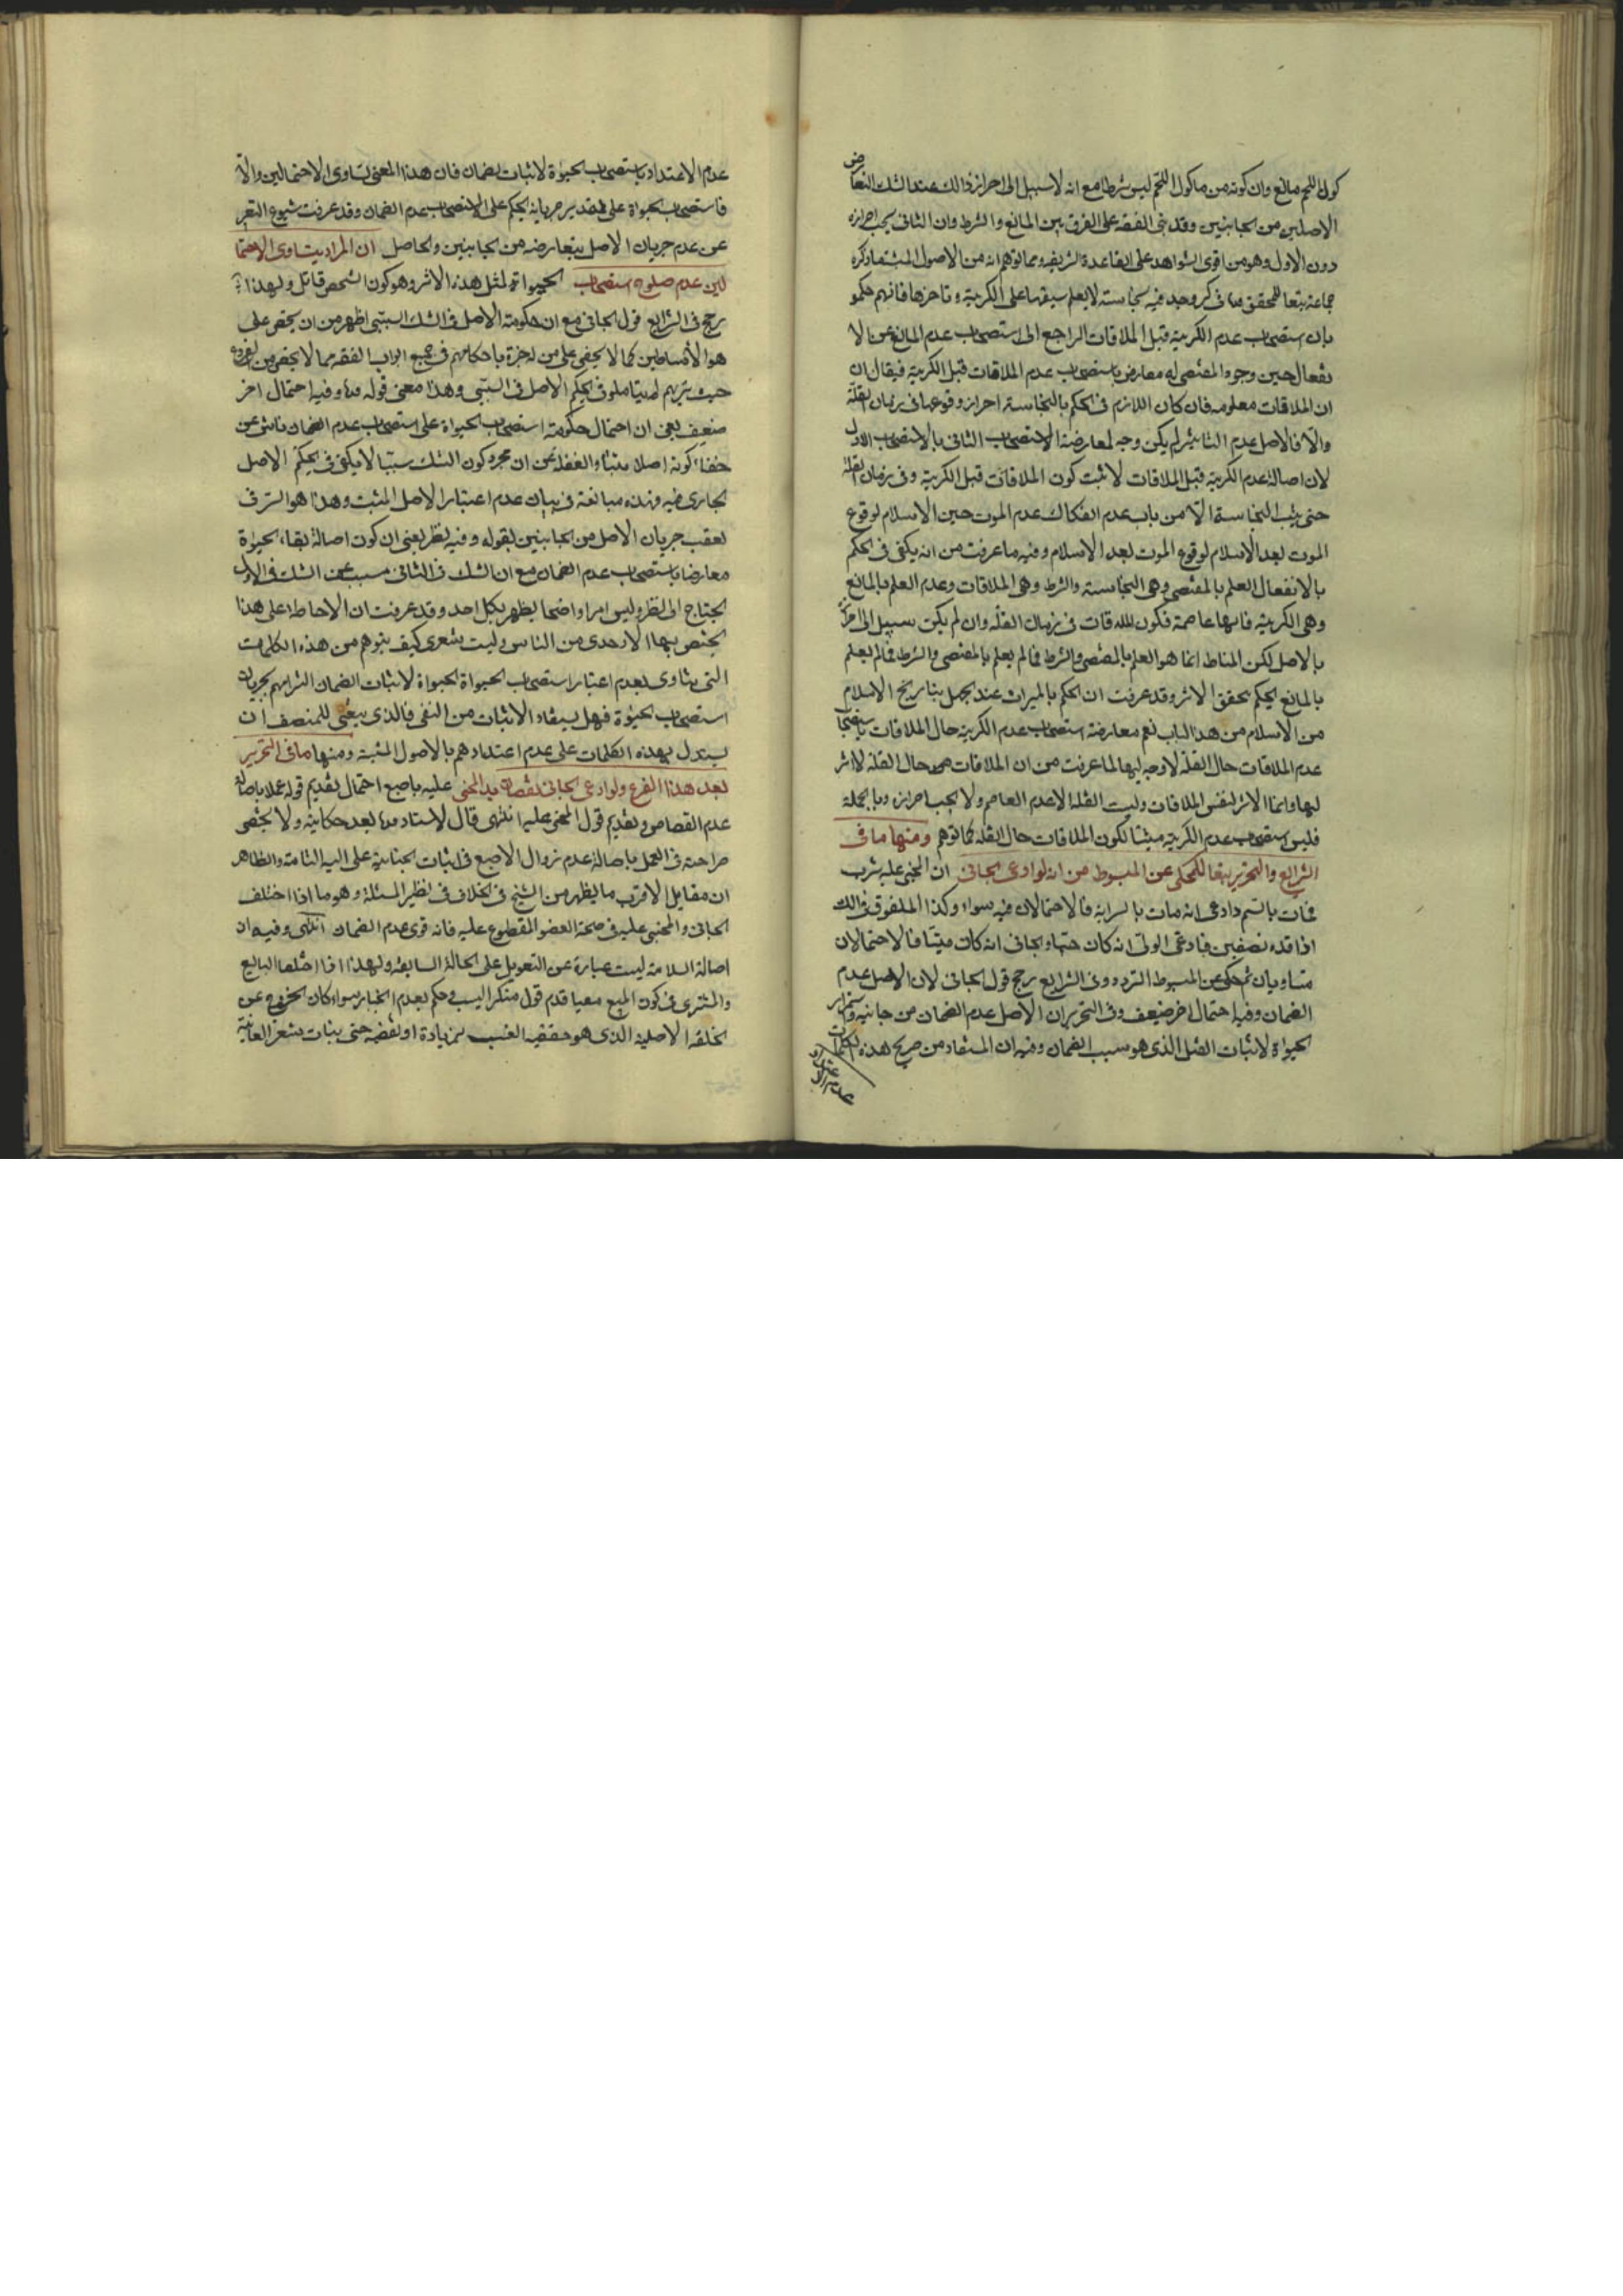 كول اللحم مانع وان كونه من ماكول اللحم ليس شرطا مع انه لا سبيل الى احراز ذالك عند الشك لتعارض
الاصلين من الجانبين وقد بنى الفقه على الفرق بين المانع والشرط وان الثانى يجب احرازه
دون الاول وهو من اقوى الشواهد على القاعدة الشريفه ومما توهم انه من الاصول المثبته ما ذكره
جماعة تبعا للمحقق فى كر وجد فيه نجاسته لا يعلم سبقها على الكرية وتاخرها فانهم حكمو
بان استصحاب عدم الكرية قبل الملاقات الراجع الى استصحاب عدم المانع عن الا
نفعال حين وجود المقتضى له معارض باستصحاب عدم الملاقات قبل الكرية فيقال ان
ان الملاقات معلومه فان كان اللازم فى الحكم بالنجاسته احراز وقوعها فى زمان القلة
والا فالاصل عدم التاثير لم يكن وجه لمعارضة الاستصحاب الثانى بالاستصحاب الاول
لان اصالة عدم الكرية قبل الملاقات لا يثبت كون الملاقات قبل الكرية وفى زمان القلة
حتى يثبت النجاسة الا من باب عدم انفكاك عدم الموت حين الاسلام لوقوع
الموت بعد الاسلام لوقوع الموت بعد الاسلام وفيه ما عرفت من انه يكفى فى الحكم
بالانفعال العلم بالمقتضى وهى النجاسته والشرط وهى الملاقات وعدم العلم بالمانع
وهى الكرية فانها عاصمة فكون الملاقات فى زمان القلة وان لم يكن سبيل الى احرازه
بالاصل لكن المناط انما هو العلم بالمقتضى والشرط فما لم يعلم بالمقتضى والشرط فما لم يعلم
بالمانع يحكم بتحقق الاثر وقد عرفت ان الحكم بالميراث عند الجهل بتاريخ الاسلام
من الاسلام من هذا الباب نعم معارضة استصحاب عدم الكرية حال الملاقات باستصحاب
عدم الملاقات حال القلة لا وجه ليها لما عرفت من ان الملاقات حال القلة لا اثر
ليها وانما الاثر لنفس الملاقات وليت القلة الا عدم العاصم ولا يجب احرازه وبالجملة
فليس استصحاب عدم الكرية مثبتا لكون الملاقات حال القلة كما توهم ومنها ما فى
الشرايع والتحرير تبعا للمحكى عن المبسوط من انه لو ادعى الجانى ان المجنى عليه شرب
فمات بالسم وادعى انه مات بالسراية فالاحتمالان فيه سواء وكذا الملفوف فى ذالك
اذا قده نصفين فادعى الولى انه كان حيا والجانى انه كان ميتا فالاحتمالان
متساويان ثم حكى عن المبسوط التردد وفى الشرايع رجح قول الجانى لان الاصل عدم
الضمان وفيه احتمال اخر ضعيف وفى التحرير ان الاصل عدم الضمان من جانبه واستمرار
الحيوة لاثبات القتل الذى هو سبب الضمان وفيه ان المستفاد من صريح هذه الكلمات
عدم الاعتداد
عدم الاعتداد باستصحاب الحيوة لاثبات الضمان فان هذا المعنى تساوى الاحتمالين والا
فاستصحاب الحيواة على تقدير جريانه يحكم على الاستصحاب عدم الضمان وقد عرفت شيوع التعبير
عن عدم جريان الاصل بتعارضه من الجانبين والحاصل ان المراد بتساوى الاحتما
لين عدم صلوح استصحاب الحيواة لمثل هذه الاثر وهو كون الشخص قاتل ولهذا
رجح فى الشرايع قول الجانى مع ان حكومته الاصل فى الشك السببى اظهر من ان يخفى على
هو الاساطين كما لا يخفى على من له خبرة باحكامهم فى جميع ابواب الفقه مما لا يخفى من الفروع
حيث تريهم لم يتاملو فى تحكيم الاصل فى السببى وهذا معنى قوله وفيه احتمال اخر
ضعيف يعنى ان احتمال حكومته استصحاب الحيواة على استصحاب عدم الضمان ناشى عن
خفاء كونه اصلا مثبتا والغفلة عن ان مجرد كون الشك سببيا لا يكفى فى تحكيم الاصل
الجارى فيه وهذه مبالغة فى بيان عدم اعتبار الاصل المثبت وهذا هو السر فى
تعقب جريان الاصل من الجانبين بقوله وفيه نظر يعنى ان كون اصالة بقاء الحيوة
معارضا باستصحاب عدم الضمان مع ان الشك فى الثانى مسبب عن الشك فى الاول
يحتاج الى نظر وليس امرا واضحا يظهر بكل احد وقد عرفت ان الاحاطة على هذا
يختص بها الاوحدى من الناس وليت شعرى كيف يتوهم من هذه الكلمات
التى تنادى بعدم اعتبار استصحاب الحيواة الحيواة لاثبات الضمان التزامهم بجريان
استصحاب الحيوة فهل يستفاد الاثبات من النفى فالذى ينبغى للمنصف ان
يستدل بهذه الكلمات على عدم اعتدادهم بالاصول المثبتة ومنها ما فى التحرير
بعد هذا الفرع ولو ادعى الجانى نقصان يد المجنى عليه باصبع احتمل تقديم قوله عملا باصالة
عدم القصاص وتقديم قول المجنى عليه انتهى قال الاستاد بعد حكايته ولا يخفى
صراحته فى العمل باصالة عدم زوال الاصبع فى اثبات الجناية على اليد التامة والظاهر
ان مقابل الاقرب ما يظهر من الشيخ فى الخلاف فى نظير المسئلة وهو ما اذا اختلف
الجانى والمجنى عليه فى صحة العضو المقطوع عليه فانه قوى عدم الضمان انتهى وفيه ان
اصالة السلامة ليست عبارة عن التعويل على الحالة السابقه ولهذا اذا اختلفا البايع
والمشترى فى كون المبيع معيبا قدم قول منكر العيب وحكم بعدم الخيار سواء كان الخروج عن
الخلقه الاصلية الذى هو حقيقه العيب بزيادة او نقيصه حتى بنبات شعر العانة